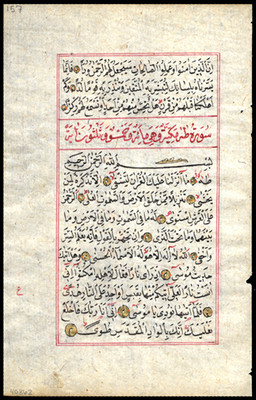 157
ان الذين امنوا وعملوا الصالحات سيجعل لهم الرحمن ودا فانما
يسرناه بلسانك لتبشر به المتقين وتنذر به قوما لدا وكم
اهلكنا قبلهم من قرن هل تحس منهم من احد او تسمع لهم ركزا
سورة طه مكية وهي مائة وخمس وثلثون اية
بسم الله الرحمن الرحيم
طه ما انزلنا عليك القرآن لتشقى الا تذكرة لمن
يخشى تنزيلا ممن خلق الارض والسموات العلى الرحمن
على العرش استوى له ما في السموات وما في الارض وما
بينهما وما تحت الثرى وان تجهر بالقول فانه يعلم السر
واخفى الله لا اله الا هو له الاسماء الحسنى وهل اتيك
حديث موسى اذ را نارا فقال لاهله امكثوا اني
انست نارا لعلي اتيكم منها بقبس او اجد على النار هدى
ع
فلما اتيها نودي يا موسى اني انا ربك فاخلع
نعليك انك بالواد المقدس طوى